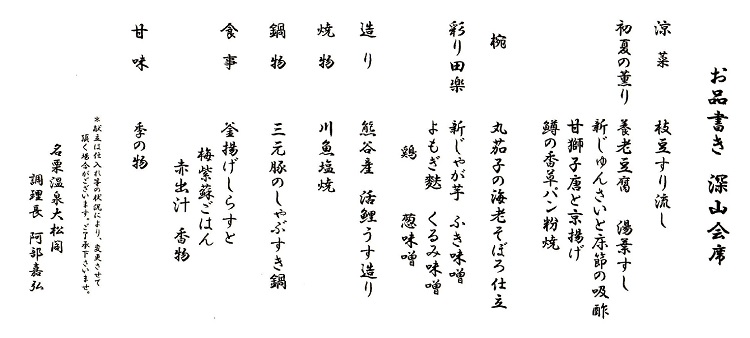 お品書き 深山会席
涼菜 枝豆すり流し
初夏の薫り 養老豆腐 湯葉すし
新じゅんさいと床節の吸酢
甘獅子唐と京揚げ
鱒の香草パン粉焼
椀 丸茄子の海老そぼろ仕立
彩り田楽 新じゃが芋 ふき味噌
よもぎ麩 くるみ味噌
鶏 葱味噌
造り 熊谷産 活鯉うす造り
焼物 川魚塩焼
鍋物 三元豚のしゃぶすき鍋
食事 釜揚げしらすと
梅紫蘇ごはん
赤出汁 香物
甘味 季の物
※献立は仕入れ等の状況により、変更させて
頂く場合がございます。ご了承下さいませ。
名栗温泉大松閣
調理長 阿部嘉弘